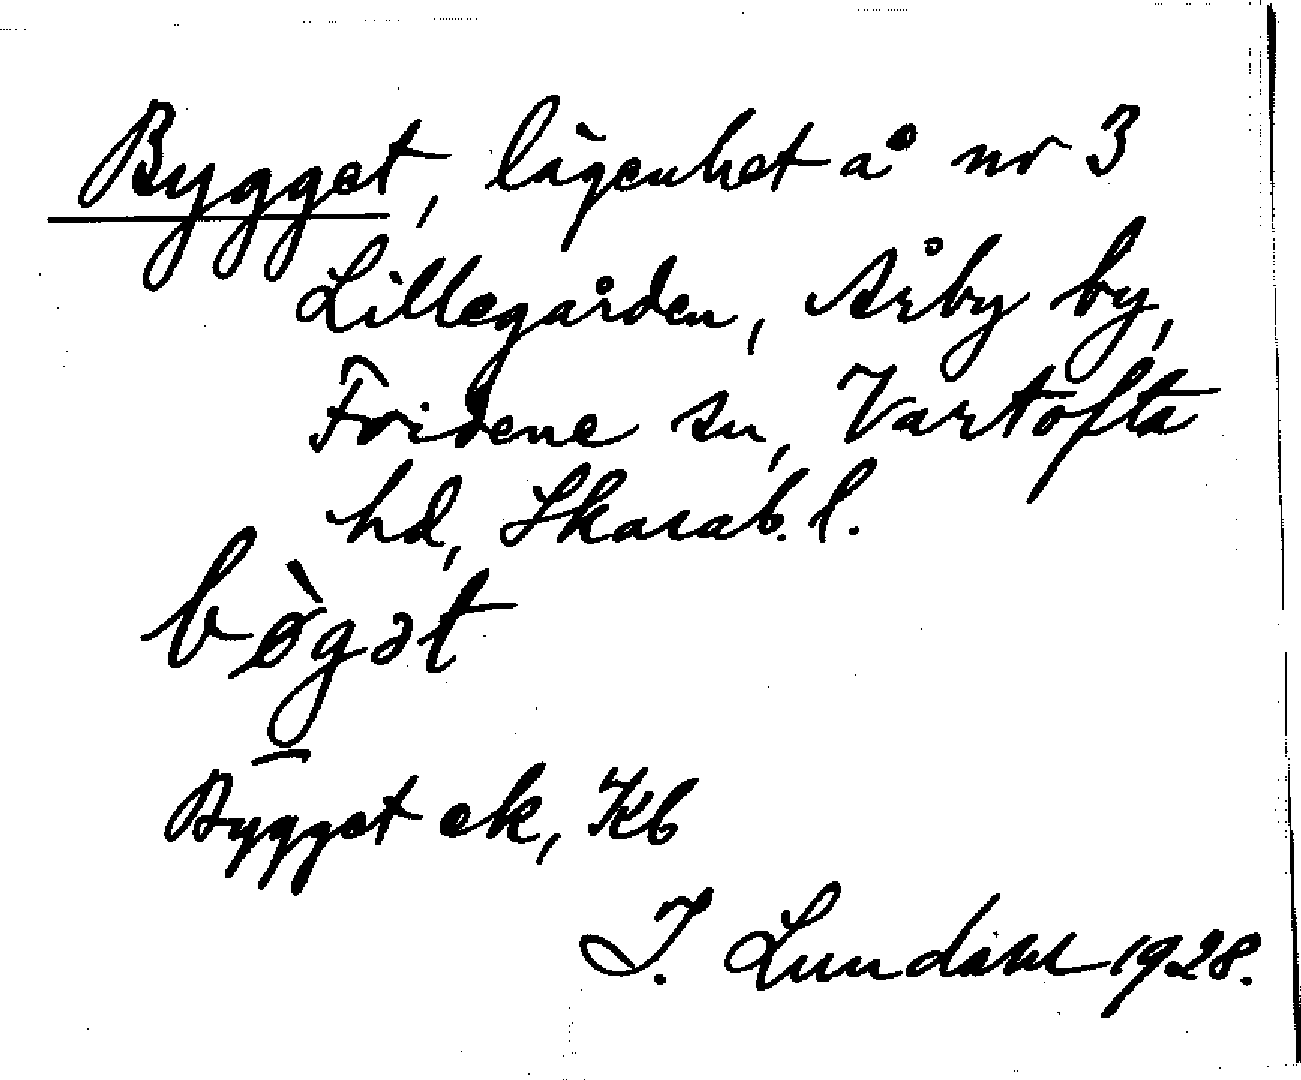 Bygget, lägenhet å nr 3
Lillegården, Årby by,
Fridene sn, Vartofta
hd, Skarab. l.
bø̀gət
Bygget ek, Kb
I. Lundahl 1928.